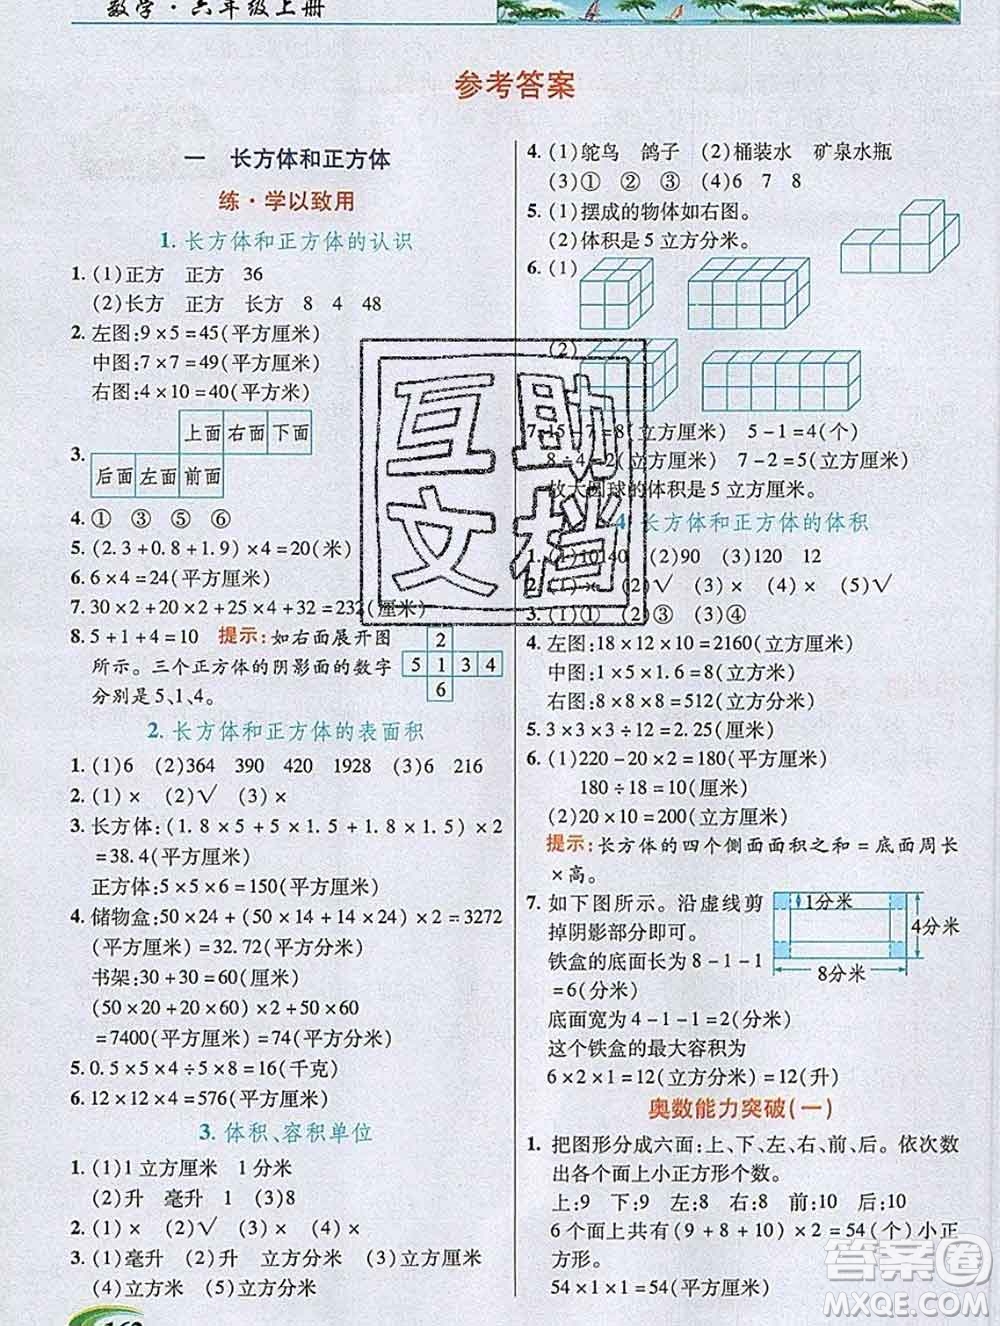 数学·六年级上册
参考答案
一 长方体和正方体
练·学以致用
1.长方体和正方体的认识
1. (1)正方 正方 36
(2)长方 正方 长方 8 4 48
2. 左图:9×5=45(平方厘米)
中图:7×7=49(平方厘米)
右图:4×10=40(平方分米)
3.
上面 右面 下面
后面 左面 前面
4. ① ③ ⑤ ⑥
5. (2.3+0.8+1.9)×4=20(米)
6. 6×4=24(平方厘米)
7. 30×2+20×2+25×4+32=232(厘米)
8. 5+1+4=10 提示:如右面展开图
所示。三个正方体的阴影面的数字
分别是5、1、4。
2
5 1 3 4
6
2.长方体和正方体的表面积
1. (1)6 (2)364 390 420 1928 (3)6 216
2. (1)× (2)√ (3)×
3. 长方体:(1.8×5+5×1.5+1.8×1.5)×2
=38.4(平方厘米)
正方体:5×5×6=150(平方厘米)
4. 储物盒:50×24+(50×24+22×24)×2=3272
(平方厘米)=32.72(平方分米)
书架:30+30=60(厘米)
(50×20+20×60)×2+50×60
=7400(平方厘米)=74(平方分米)
5. 0.5×5×4÷5×8=16(千克)
6. 12×12×4=576(平方厘米)
3.体积、容积单位
1. (1)1立方厘米 1分米
(2)升 毫升 1 (3)8
2. (1)× (2)√ (3)× (4)×
3. (1)毫升 (2)升 立方分米 (3)立方厘米
(4)立方分米 (5)立方米
4. (1)鸵鸟 鸽子 (2)桶装水 矿泉水瓶
(3)① ② ③ (4)6 7 8
5. (1)摆成的物体如右图。
(2)体积是5立方分米。
6. (1)
(2)
=8(立方厘米) 5-1=4(个)
8÷4=2(立方厘米) 7-2=5(立方厘米)
故大圆球的体积是5立方厘米。
4.长方体和正方体的体积
1. (1)10140 (2)90 (3)120 12
2. (1)× (2)√ (3)× (4)× (5)√
3. (1)① (2)③ (3)④
4. 左图:18×12×10=2160(立方厘米)
中图:1×5×1.6=8(立方分米)
右图:8×8×8=512(立方分米)
5. 3×3×3÷12=2.25(厘米)
6. (1)220-20×2=180(平方厘米)
180÷18=10(厘米)
(2)20×10=200(立方厘米)
提示:长方体的四个侧面面积之和=底面周长
×高。
7. 如下图所示。沿虚线剪
掉阴影部分即可。
铁盒的底面长为8-1-1
=6(分米)
底面宽为4-1-1=2(分米)
这个铁盒的最大容积为
6×2×1=12(立方分米)=12(升)
1分米
4分米
8分米
奥数能力突破(一)
1. 把图形分成六面:上、下、左、右、前、后。依次数
出各个面上小正方形个数。
上:9 下:9 左:8 右:8 前:10 后:10
6个面上共有(9+8+10)×2=54(个)小正
方形。
54×1×1=54(平方厘米)
互助
文档
答案圈
MXQE.COM